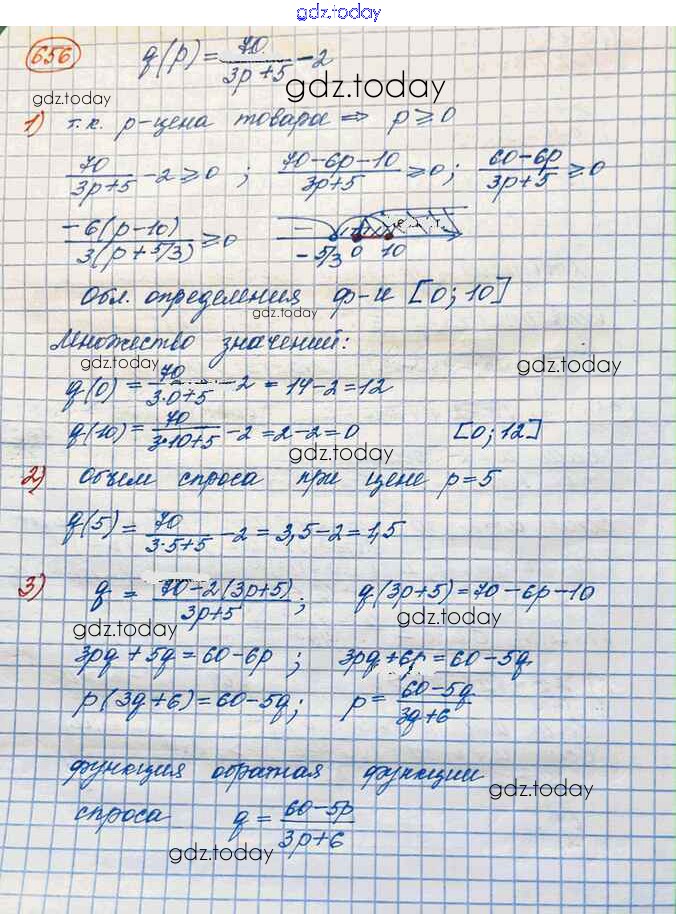 gdz.today
656 q(p) = 70/(3p+5) - 2
gdz.today
gdz.today
1) т.к. p-цена товара ⇒ p ≥ 0
70/(3p+5) - 2 ≥ 0 ; (70-6p-10)/(3p+5) ≥ 0 ; (60-6p)/(3p+5) ≥ 0
-6(p-10)/3(p+5/3) ≥ 0
-5/3 0 10
Обл. определения ф-и [0; 10]
gdz.today
Множество значений:
gdz.today
gdz.today
q(0) = 70/(3·0+5) - 2 = 14-2 = 12
q(10) = 70/(3·10+5) - 2 = 2-2 = 0 [0; 12]
gdz.today
2) Объем спроса при цене p = 5
q(5) = 70/(3·5+5) - 2 = 3,5-2 = 1,5
3) q = (70-2(3p+5))/(3p+5) ; q(3p+5) = 70-6p-10
gdz.today
gdz.today
3pq + 5q = 60-6p ; 3pq + 6p = 60-5q
p(3q+6) = 60-5q ; p = (60-5q)/(3q+6)
функция обратная функции
gdz.today
спроса q = (60-5p)/(3p+6)
gdz.today